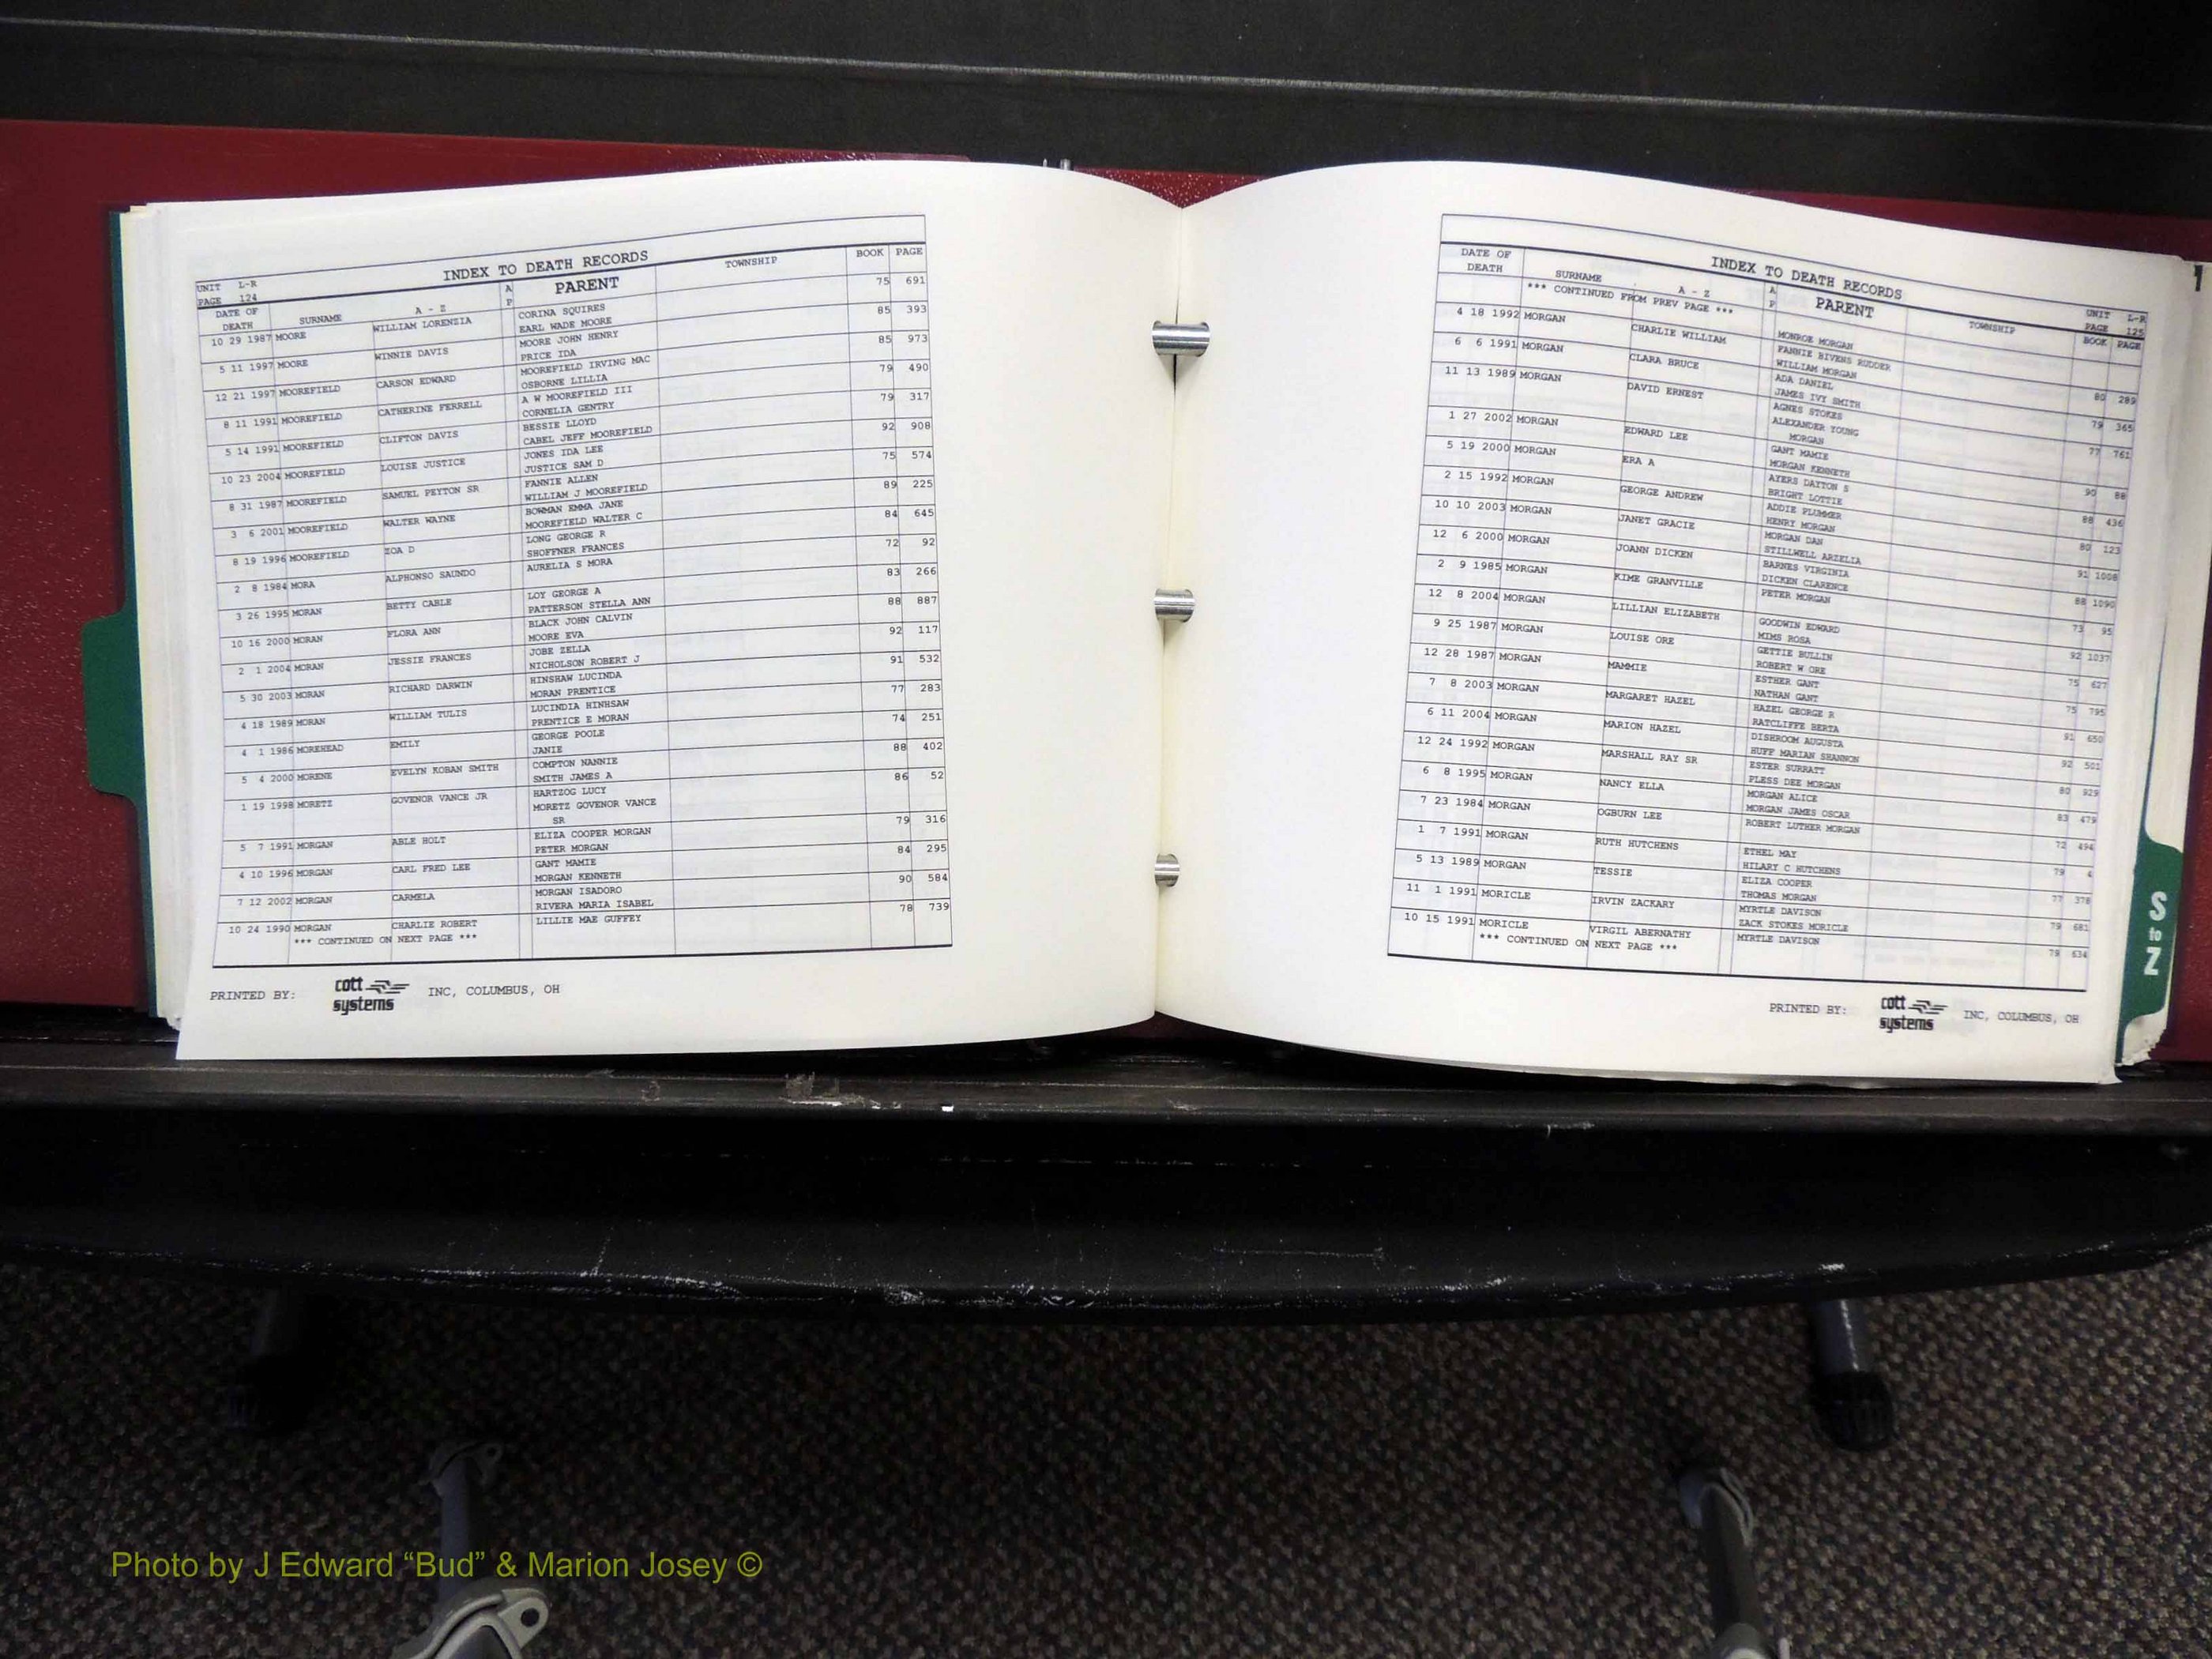 INDEX TO DEATH RECORDS
UNIT L-R
PAGE 124
DATE OF DEATH SURNAME A - Z A P PARENT TOWNSHIP BOOK PAGE
10 29 1987 MOORE WILLIAM LORENZIA CORINA SQUIRES 75 691
EARL WADE MOORE
5 11 1997 MOORE WINNIE DAVIS MOORE JOHN HENRY 85 393
PRICE IDA
12 21 1997 MOOREFIELD CARSON EDWARD MOOREFIELD IRVING MAC 85 973
OSBORNE LILLIA
8 11 1991 MOOREFIELD CATHERINE FERRELL A W MOOREFIELD III 79 490
CORNELIA GENTRY
5 14 1991 MOOREFIELD CLIFTON DAVIS BESSIE LLOYD 79 317
CABEL JEFF MOOREFIELD
10 23 2004 MOOREFIELD LOUISE JUSTICE JONES IDA LEE 92 908
JUSTICE SAM D
8 31 1987 MOOREFIELD SAMUEL PEYTON SR FANNIE ALLEN 75 574
WILLIAM J MOOREFIELD
3 6 2001 MOOREFIELD WALTER WAYNE BOWMAN EMMA JANE 89 225
MOOREFIELD WALTER C
8 19 1996 MOOREFIELD ZOA D LONG GEORGE R 84 645
SHOFFNER FRANCES
2 8 1984 MORA ALPHONSO SAUNDO AURELIA S MORA 72 92
3 26 1995 MORAN BETTY CABLE LOY GEORGE A 83 266
PATTERSON STELLA ANN
10 16 2000 MORAN FLORA ANN BLACK JOHN CALVIN 88 887
MOORE EVA
2 1 2004 MORAN JESSIE FRANCES JOBE ZELLA 92 117
NICHOLSON ROBERT J
5 30 2003 MORAN RICHARD DARWIN HINSHAW LUCINDA 91 532
MORAN PRENTICE
4 18 1989 MORAN WILLIAM TULIS LUCINDIA HINHSAW 77 283
PRENTICE E MORAN
4 1 1986 MOREHEAD EMILY GEORGE POOLE 74 251
JANIE
5 4 2000 MORENE EVELYN KOBAN SMITH COMPTON NANNIE 88 402
SMITH JAMES A
1 19 1998 MORETZ GOVENOR VANCE JR HARTZOG LUCY 86 52
MORETZ GOVENOR VANCE
SR
5 7 1991 MORGAN ABLE HOLT ELIZA COOPER MORGAN 79 316
PETER MORGAN
4 10 1996 MORGAN CARL FRED LEE GANT MAMIE 84 295
MORGAN KENNETH
7 12 2002 MORGAN CARMELA MORGAN ISADORO 90 584
RIVERA MARIA ISABEL
10 24 1990 MORGAN CHARLIE ROBERT LILLIE MAE GUFFEY 78 739
*** CONTINUED ON NEXT PAGE ***
PRINTED BY: cott systems INC, COLUMBUS, OH
INDEX TO DEATH RECORDS
UNIT L-R
PAGE 125
DATE OF DEATH SURNAME A - Z A P PARENT TOWNSHIP BOOK PAGE
*** CONTINUED FROM PREV PAGE ***
MONROE MORGAN
4 18 1992 MORGAN CHARLIE WILLIAM FANNIE BIVENS RUDDER 80 289
WILLIAM MORGAN
6 6 1991 MORGAN CLARA BRUCE ADA DANIEL 79 365
JAMES IVY SMITH
11 13 1989 MORGAN DAVID ERNEST AGNES STOKES 77 761
ALEXANDER YOUNG
MORGAN
1 27 2002 MORGAN EDWARD LEE GANT MAMIE 90 88
MORGAN KENNETH
5 19 2000 MORGAN ERA A AYERS DAYTON S 88 436
BRIGHT LOTTIE
2 15 1992 MORGAN GEORGE ANDREW ADDIE PLUMMER 80 123
HENRY MORGAN
10 10 2003 MORGAN JANET GRACIE MORGAN DAN 91 1008
STILLWELL ARZELLIA
12 6 2000 MORGAN JOANN DICKEN BARNES VIRGINIA 88 1090
DICKEN CLARENCE
2 9 1985 MORGAN KIME GRANVILLE PETER MORGAN 73 95
12 8 2004 MORGAN LILLIAN ELIZABETH GOODWIN EDWARD 92 1037
MIMS ROSA
9 25 1987 MORGAN LOUISE ORE GETTIE BULLIN 75 627
ROBERT W ORE
12 28 1987 MORGAN MAMMIE ESTHER GANT 75 795
NATHAN GANT
7 8 2003 MORGAN MARGARET HAZEL HAZEL GEORGE R 91 650
RATCLIFFE BERTA
6 11 2004 MORGAN MARION HAZEL DISHROOM AUGUSTA 92 501
HUFF MARIAN SHANNON
12 24 1992 MORGAN MARSHALL RAY SR ESTER SURRATT 80 929
PLESS DEE MORGAN
6 8 1995 MORGAN NANCY ELLA MORGAN ALICE 83 479
MORGAN JAMES OSCAR
7 23 1984 MORGAN OGBURN LEE ROBERT LUTHER MORGAN 72 494
1 7 1991 MORGAN RUTH HUTCHENS ETHEL MAY 79 4
HILARY C HUTCHENS
5 13 1989 MORGAN TESSIE ELIZA COOPER 77 378
THOMAS MORGAN
11 1 1991 MORICLE IRVIN ZACKARY MYRTLE DAVISON 79 681
ZACK STOKES MORICLE
10 15 1991 MORICLE VIRGIL ABERNATHY MYRTLE DAVISON 79 634
*** CONTINUED ON NEXT PAGE ***
PRINTED BY: cott systems INC, COLUMBUS, OH
S to Z
Photo by J Edward “Bud” & Marion Josey ©